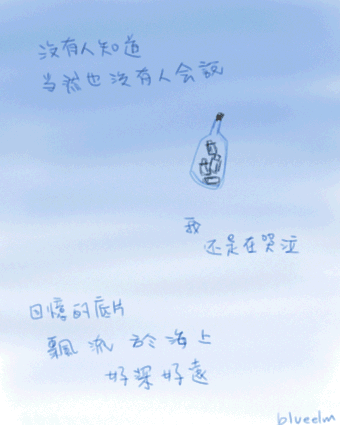 沒有人知道
當然也沒有人会說
我
还是在哭泣
回憶的底片
飄流於海上
好深好遠
blueelm